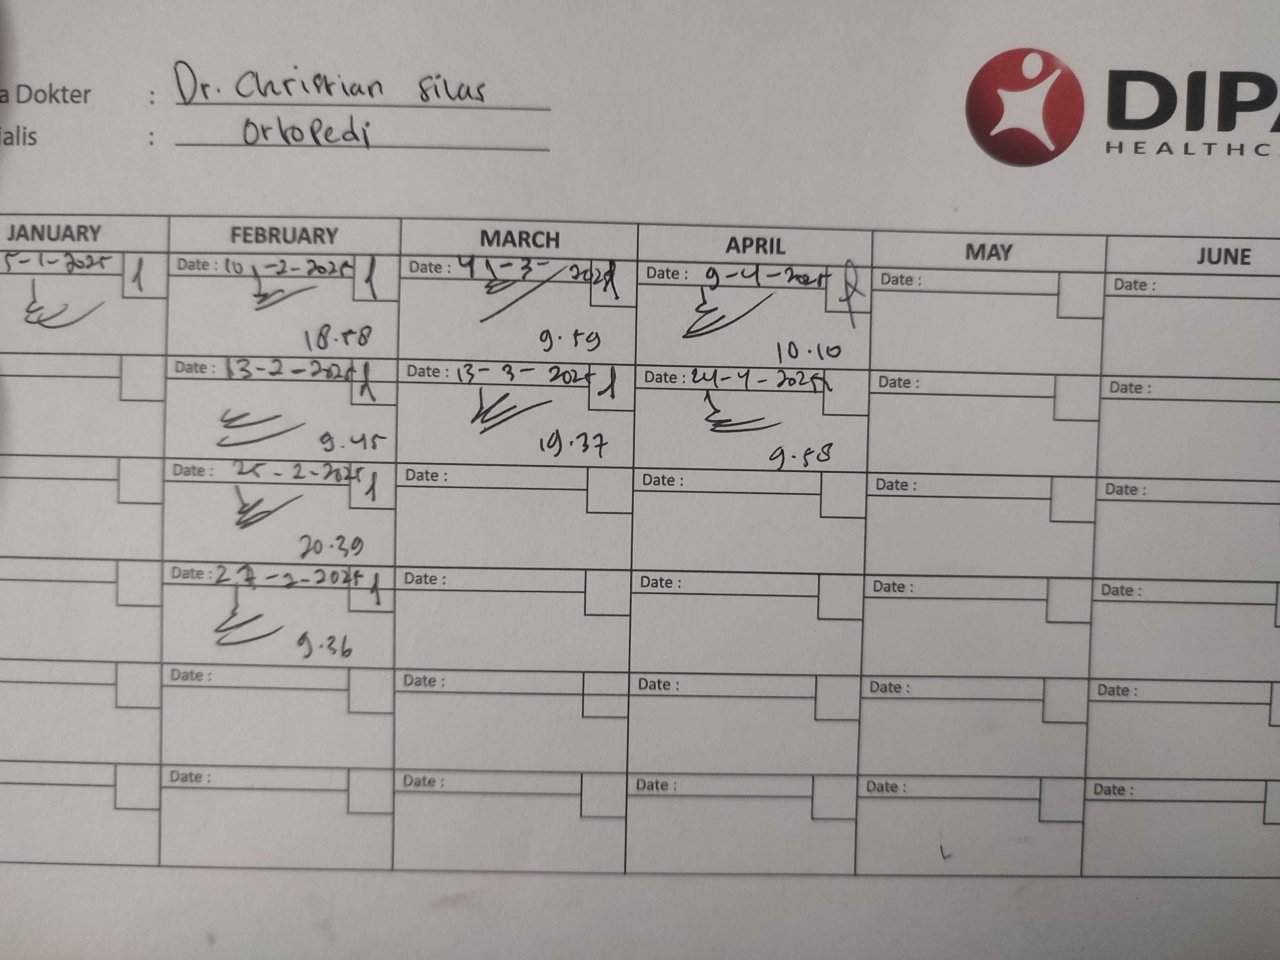 a Dokter : Dr. Christian Silas
ialis : Ortopedi
DIPA
HEALTHC
JANUARY FEBRUARY MARCH APRIL MAY JUNE
5-1-2025 1 Date : 10-2-2025 1 Date : 4-3-2025 1 Date : 9-4-2025 Date : Date :
18.58 9.59 10.10
Date : 13-2-2025 1 Date : 13-3-2025 1 Date : 24-4-2025 Date : Date :
9.45 19.37 9.58
Date : 25-2-2025 1 Date : Date : Date : Date :
20.39
Date : 27-2-2025 1 Date : Date : Date : Date :
9.36
Date : Date : Date : Date : Date :
Date : Date : Date : Date : Date :